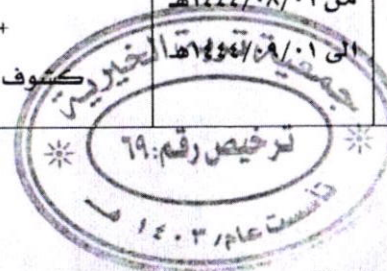 من ٠١/٠٨/١٤٤٤هـ
+
الى ٠١/٠٩/١٤٤٤هـ
كشوف
جمعية الخيرية
ترخيص رقم: ٦٩
تأسست عام ١٤٠٣ هـ